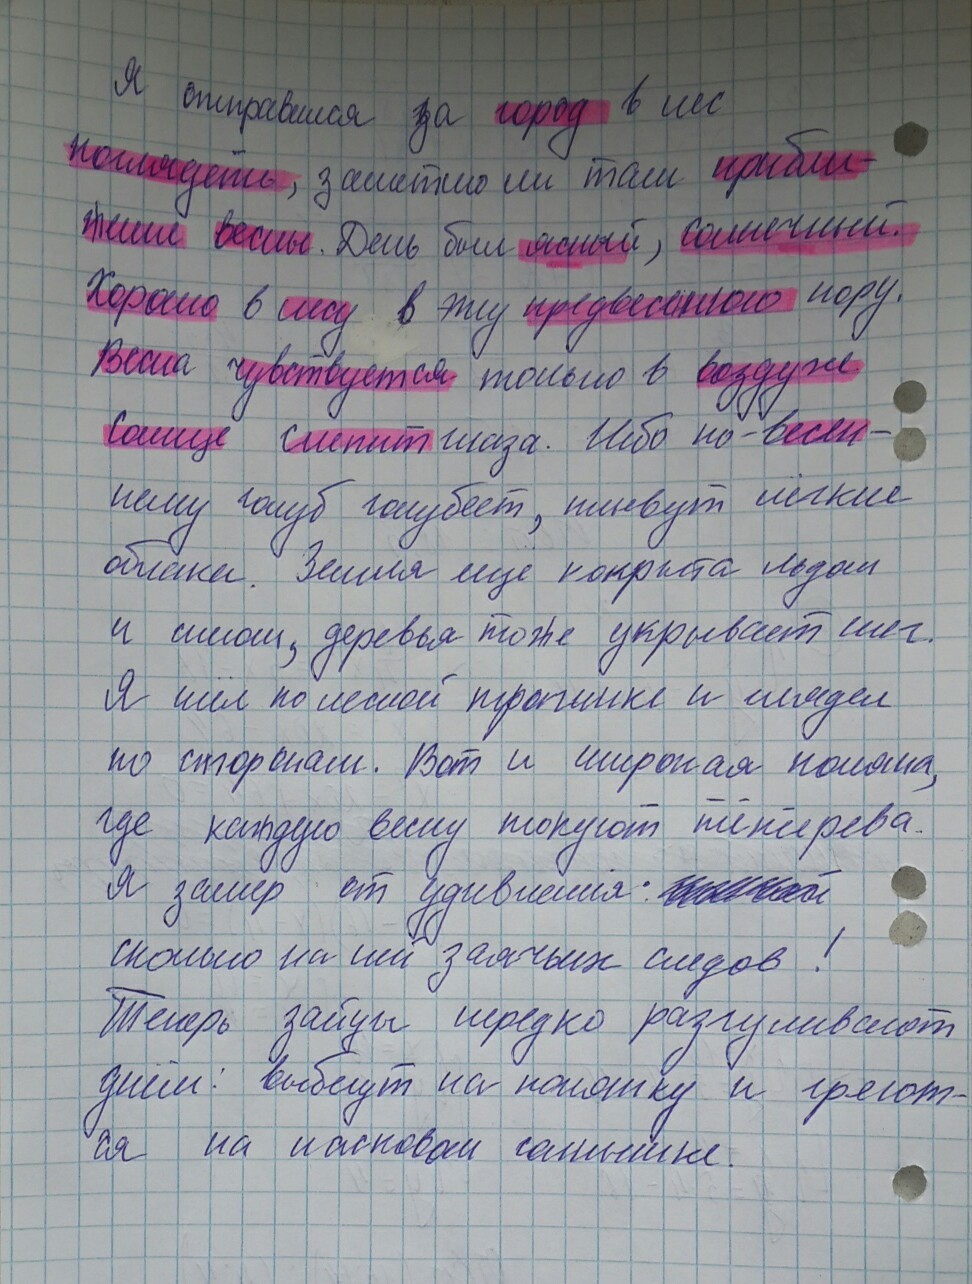 Я отправился за город в лес
поглядеть, заметно ли там прибли-
жение весны. День был ясный, солнечный.
Хорошо в лесу в эту предвесеннюю пору.
Весна чувствуется только в воздухе
Солнце слепит глаза. Небо по-весен-
нему голуб голубеет, плывут лёгкие
облака. Земля ещё покрыта льдом
и снегом, деревья тоже укрывает снег.
Я шёл по лесной тропинке и глядел
по сторонам. Вот и широкая поляна,
где каждую весну токуют тетерева.
Я замер от удивления:
сколько на ней заячьих следов!
Теперь зайцы нередко разгуливают
днём: выбегут на полянку и греют-
ся на ласковом солнышке.